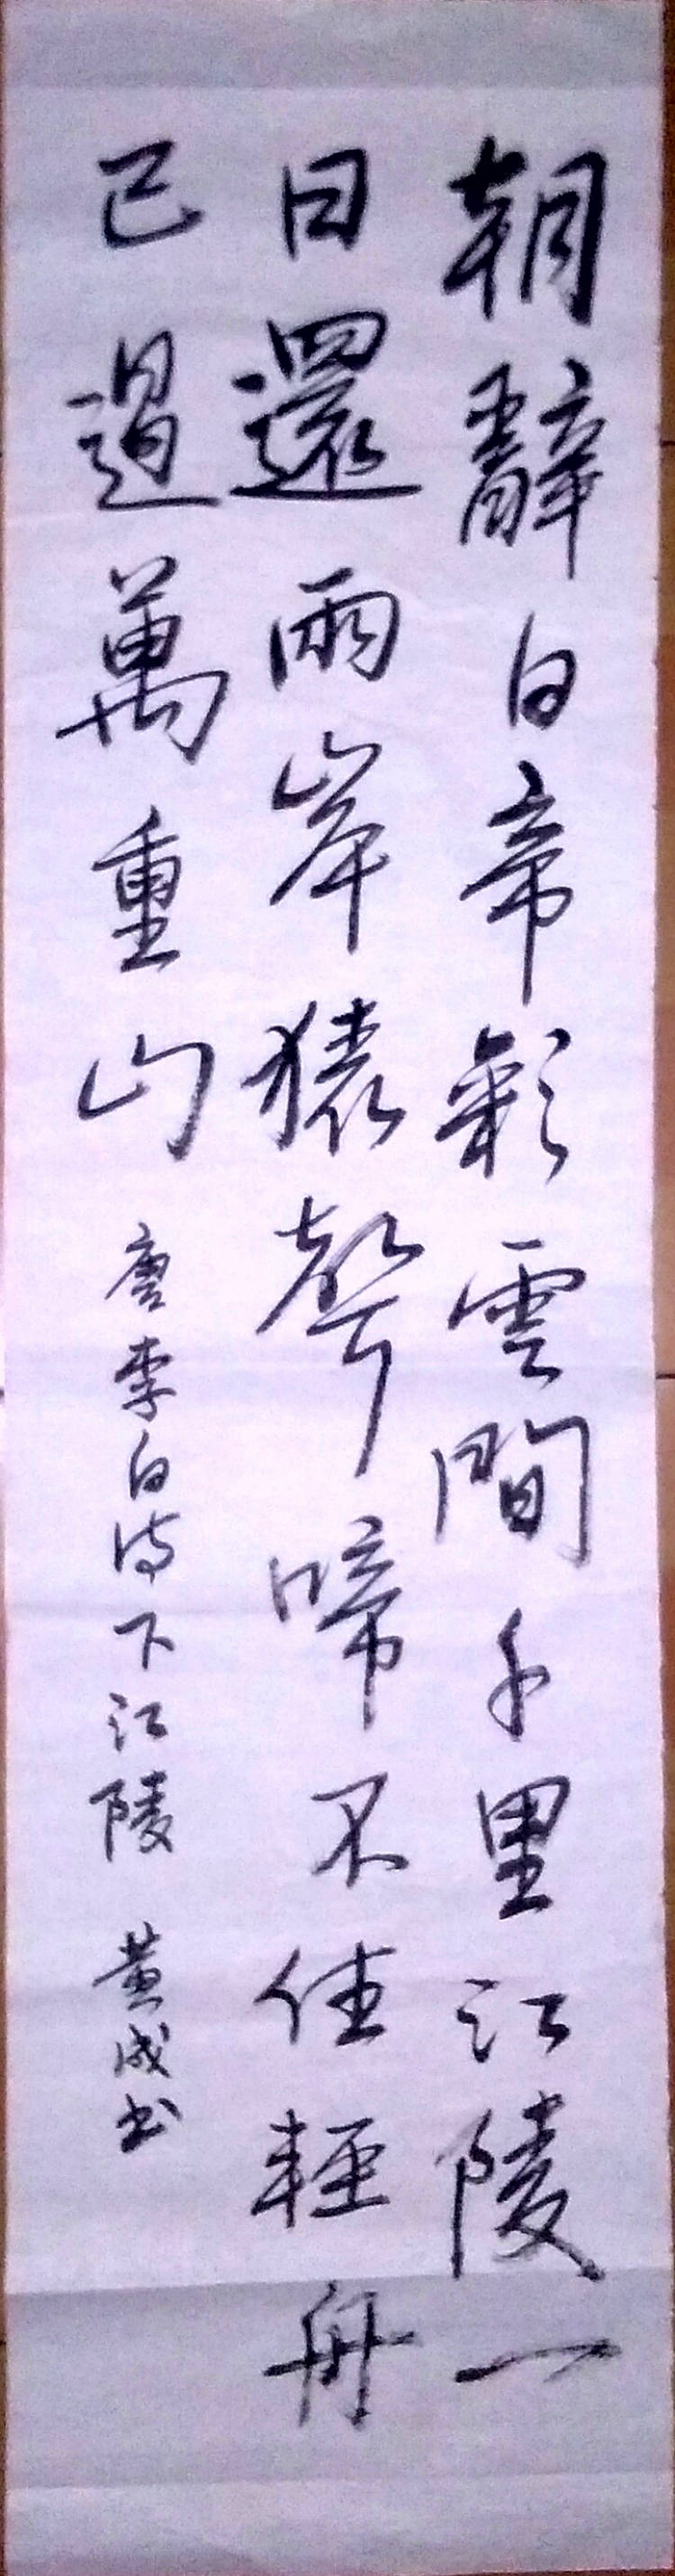 朝辭白帝彩雲間千里江陵一
日還兩岸猿聲啼不住輕舟
已過萬重山 唐李白詩下江陵 黄成书